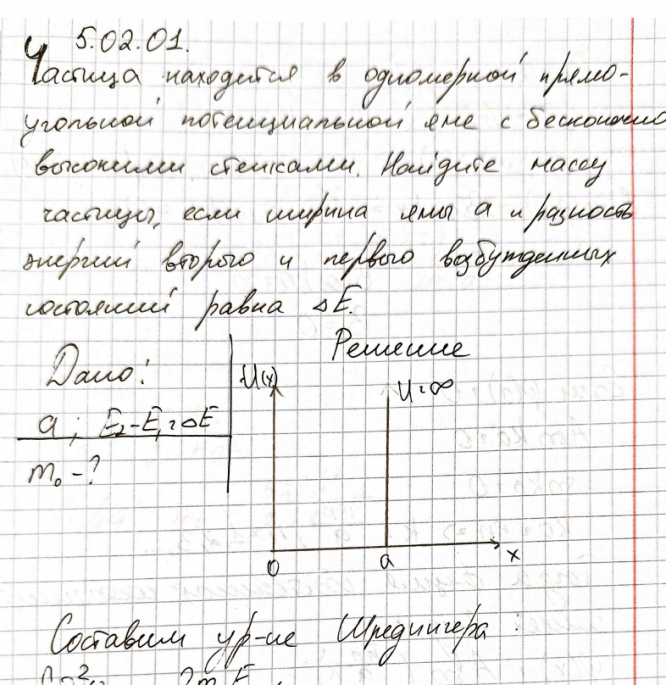 5.02.01.
Частица находится в одномерной прямо-
угольной потенциальной яме с бесконечно
высокими стенками. Найдите массу
частицы, если ширина ямы a и разность
энергий второго и первого возбужденных
состояний равна ΔE.
Решение
Дано:
a; E₂-E₁=ΔE
m₀-?
U(x)
U=∞
0
a
x
Составим ур-ие Шредингера: